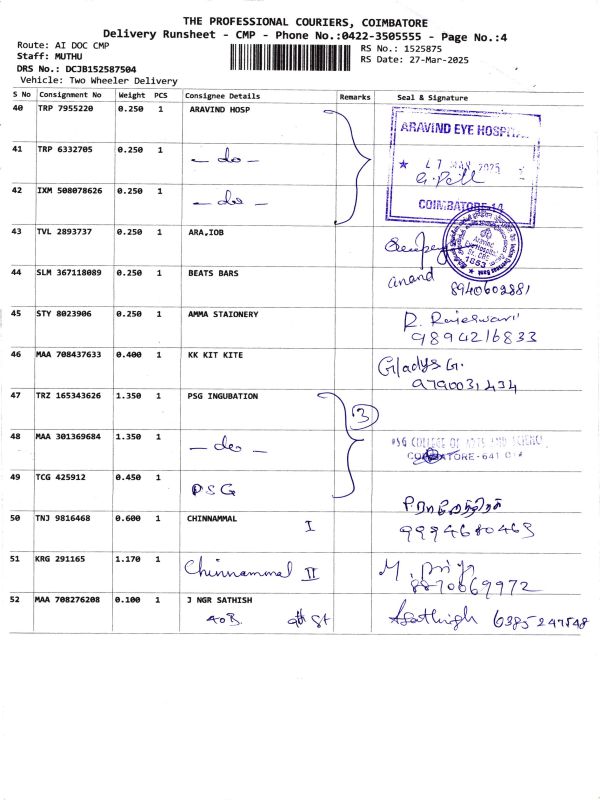 THE PROFESSIONAL COURIERS, COIMBATORE
Delivery Runsheet - CMP - Phone No.:0422-3505555 - Page No.:4
Route: AI DOC CMP
Staff: MUTHU
DRS No.: DCJB152587504
Vehicle: Two Wheeler Delivery
RS No.: 1525875
RS Date: 27-Mar-2025
S No Consignment No Weight PCS Consignee Details Remarks Seal & Signature
40 TRP 7955220 0.250 1 ARAVIND HOSP
ARAVIND EYE HOSPITAL
41 TRP 6332705 0.250 1 — do —
MAR 2025
42 IXM 508078626 0.250 1 — do —
COIMBATORE-14
43 TVL 2893737 0.250 1 ARA,IOB
44 SLM 367118089 0.250 1 BEATS BARS anand
8940602881
45 STY 8023906 0.250 1 AMMA STAIONERY R. Rajeswari
9894216833
46 MAA 708437633 0.400 1 KK KIT KITE Gladys G.
9790031434
47 TRZ 165343626 1.350 1 PSG INGUBATION
3
48 MAA 301369684 1.350 1 — do — PSG COLLEGE OF ARTS AND SCIENCE
COIMBATORE-641 014
49 TCG 425912 0.450 1 PSG
50 TNJ 9816468 0.600 1 CHINNAMMAL I
9994680463
51 KRG 291165 1.170 1 Chinnammal II M. priya
8870669972
52 MAA 708276208 0.100 1 J NGR SATHISH
40B 9th St Sathish 6385247548